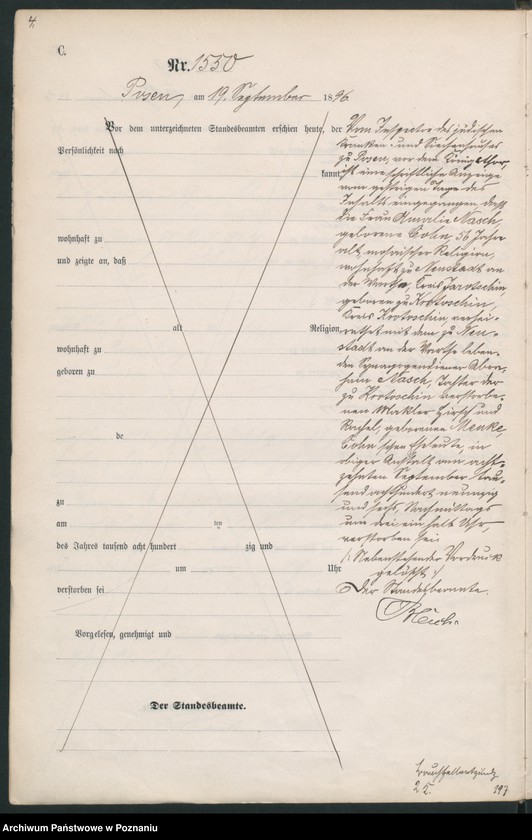 4.
C.
Nr. 1550
Posen, am 19. September 1896
Vor dem unterzeichneten Standesbeamten erschien heute, der
Persönlichkeit nach
kannt,
wohnhaft zu
und zeigte an, daß
alt Religion,
wohnhaft zu
geboren zu
de
zu
am ten
des Jahres tausend acht hundert zig und
um Uhr
verstorben sei
Vorgelesen, genehmigt und
Der Standesbeamte.
Vom Inspector des jüdischen
Kranken- und Siechenhauses
zu Posen, vor dem Königsthor,
ist eine schriftliche Anzeige
vom gestrigen Tage des
Inhalts eingegangen, daß
die Frau Amalie Nasch,
geborene Cohn, 56 Jahre
alt, mosaischer Religion,
wohnhaft zu Neustadt an
der Warthe, Kreis Jarotschin
geboren zu Krotoschin,
Kreis Krotoschin, verhei-
rathet mit dem zu Neu-
stadt an der Warthe leben-
den Synagogendiener Abra-
ham Nasch, Tochter der
zu Krotoschin verstorbe-
nen Makler Hirsch und
Rachel, geborenen Menke,
Cohn'schen Eheleute, in
obiger Anstalt am acht-
zehnten September tau-
send achthundert neunzig
und sechs, Nachmittags
um drei ein halb Uhr,
verstorben sei
(: Nebenstehender Vordruck
gelöscht :)
Der Standesbeamte.
197
Archiwum Państwowe w Poznaniu